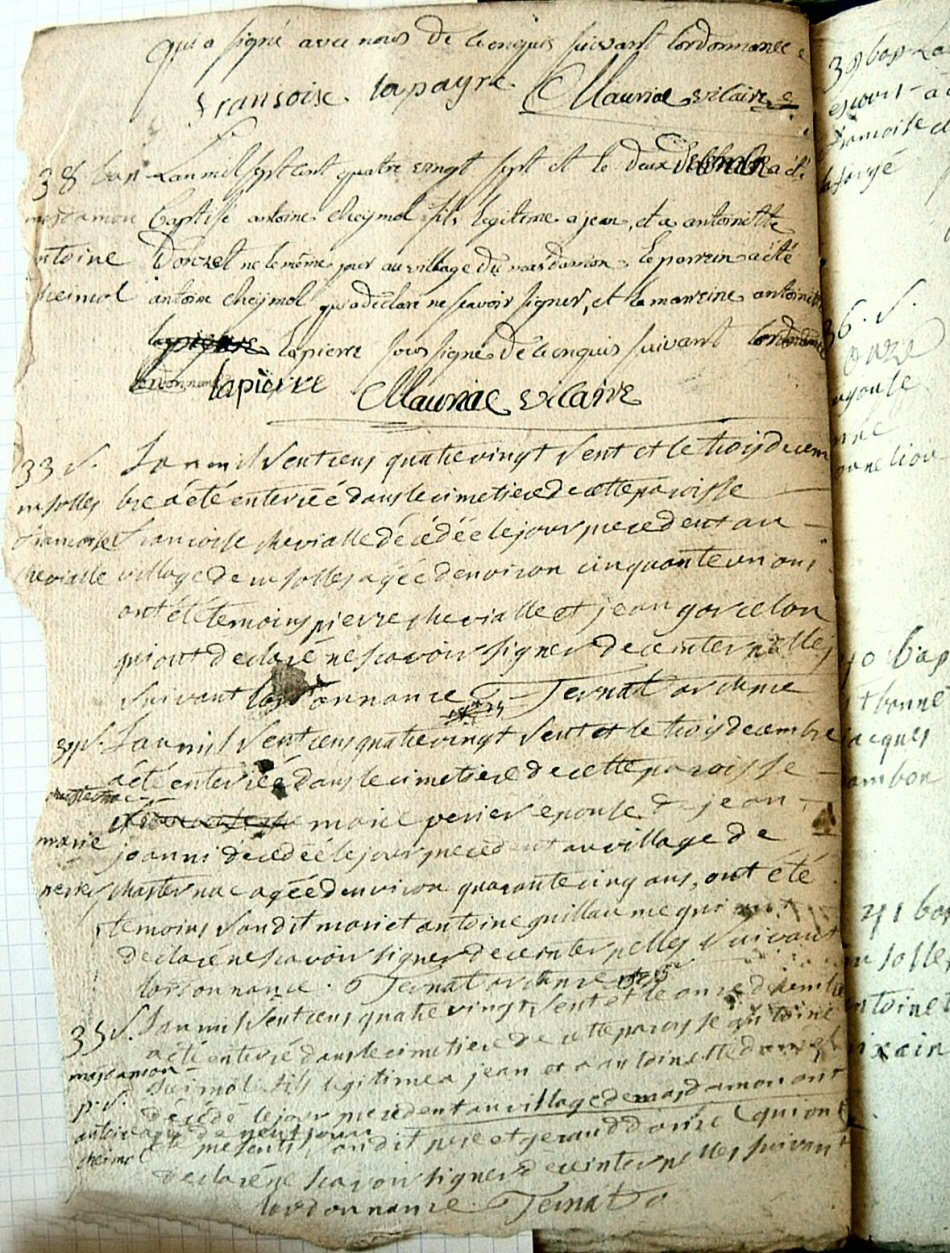 qui a signé avec nous de ce enquis suivant lordonnance
fransoise lapayre Mauriac vicaire
38 bap Lan mil sept cent quatre vingt sept et le deux decembre a été
masdamon baptisé antoine cheymol fils legitime a jean, et a antoinette
antoine Donzel ne le même jour au village du masdamon le parrein a été
cheimol antoine cheymol qui a déclaré ne scavoir signer, et la mareine antoinette
lapierre sous signé de ce enquis suivant
lapierre Mauriac vicaire
33 S. Lan mil sent cens quatre vingt sent et le trois decem
bre a été enterréé dans le cimetiere de cette paroisse
francoise francoise chevialle décédée le jour precedent au
chevialle village de agéé denviron cinquante un ans
ont été temoins pierre chevialle et jean gorcelon
qui ont declaré ne scavoir signer de ce internellés
suivant lordonnance Ternat
34 S. Lan mil sent cens quatre vingt sent et le trois decembre
a été enterréé dans le cimetiere de cette paroisse
marie perier epouse de jean
marie joanni décédéé le jour precedent au village de
perier chasternac agéé denviron quarante cinq ans, ont été
temoins son dit mari et antoine guillaume qui ont
declaré ne scavoir signer de ce internelles suivant
lordonnance. Ternat
35 S. Lan mil sent cens quatre vingt sent et le onze decembre
masdamon a été enterré dans le cimetiere de cette paroisse antoine
p. S. cheimol fils legitime a jean et a antoinette donzel
décédé le jour precedent au village de masdamon ont
antoine agé de neuf jours
cheimol été presents son dit pere et geraud donzel qui ont
declaré ne scavoir signer de ce internelles suivant
lordonnance Ternat
39 bap
francoise
36. S.
40 bap
jacques
41 bap
antoine